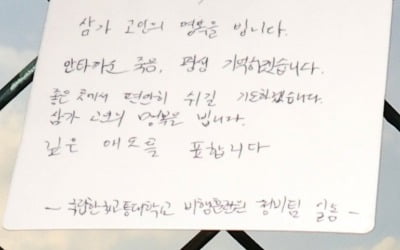 삼가 고인의 명복을 빕니다.
안타까운 죽음, 평생 기억하겠습니다.
좋은 곳에서 편안히 쉬길 기도하겠습니다.
삼가 고인의 명복을 빕니다.
깊은 애도를 표합니다
- 국립한국교통대학교 비행훈련원 정비팀 일동 -